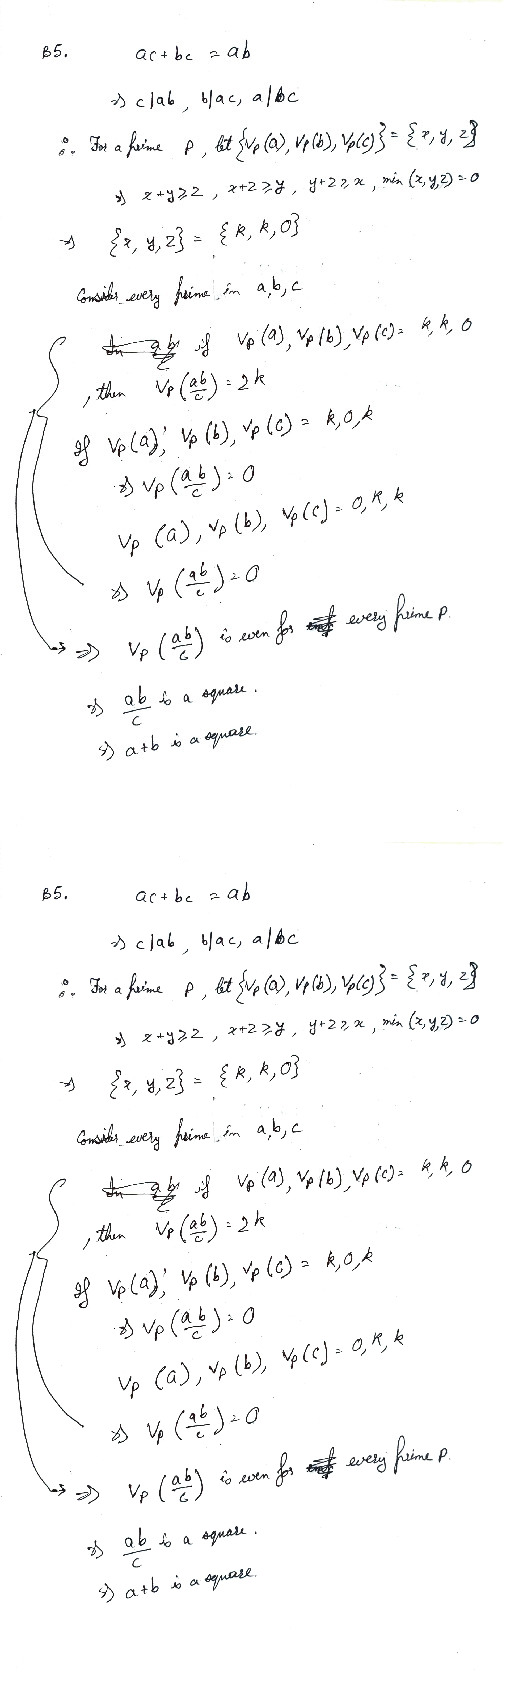 B5. ac + bc = ab
⇒ c|ab, b|ac, a|bc
∴ For a prime p, let {Vp(a), Vp(b), Vp(c)} = {x, y, z}
⇒ x+y≥z, x+z≥y, y+z≥x, min(x,y,z)=0
⇒ {x, y, z} = {k, k, 0}
Consider every prime in a, b, c
if Vp(a), Vp(b), Vp(c) = k, k, 0
, then Vp(ab/c) = 2k
If Vp(a), Vp(b), Vp(c) = k, 0, k
⇒ Vp(ab/c) = 0
Vp(a), Vp(b), Vp(c) = 0, k, k
⇒ Vp(ab/c) = 0
⇒ Vp(ab/c) is even for every prime p.
⇒ ab/c is a square.
⇒ a+b is a square.
B5. ac + bc = ab
⇒ c|ab, b|ac, a|bc
∴ For a prime p, let {Vp(a), Vp(b), Vp(c)} = {x, y, z}
⇒ x+y≥z, x+z≥y, y+z≥x, min(x,y,z)=0
⇒ {x, y, z} = {k, k, 0}
Consider every prime in a, b, c
if Vp(a), Vp(b), Vp(c) = k, k, 0
, then Vp(ab/c) = 2k
If Vp(a), Vp(b), Vp(c) = k, 0, k
⇒ Vp(ab/c) = 0
Vp(a), Vp(b), Vp(c) = 0, k, k
⇒ Vp(ab/c) = 0
⇒ Vp(ab/c) is even for every prime p.
⇒ ab/c is a square.
⇒ a+b is a square.